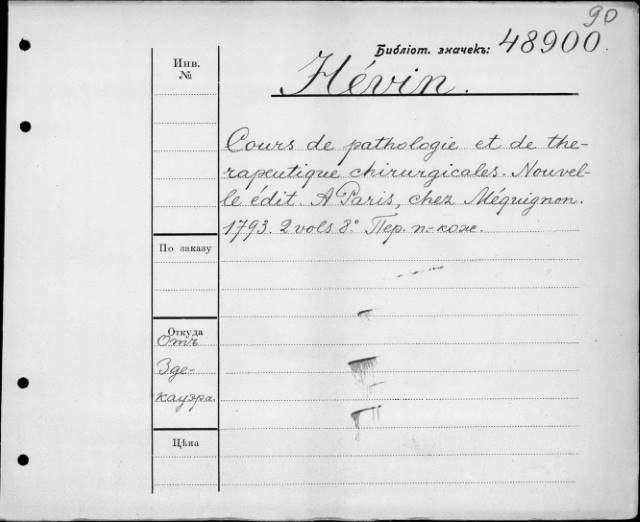 90
Библіот. значекъ: 48900.
Инв.
№
Hévin.
Cours de pathologie et de the-
rapeutique chirurgicales. Nouvel-
le édit. A Paris, chez Méquignon.
1793. 2 vols 8.° Пер. п-кож.
По заказу
Откуда
Отъ
Зде-
кауэра.
Цѣна